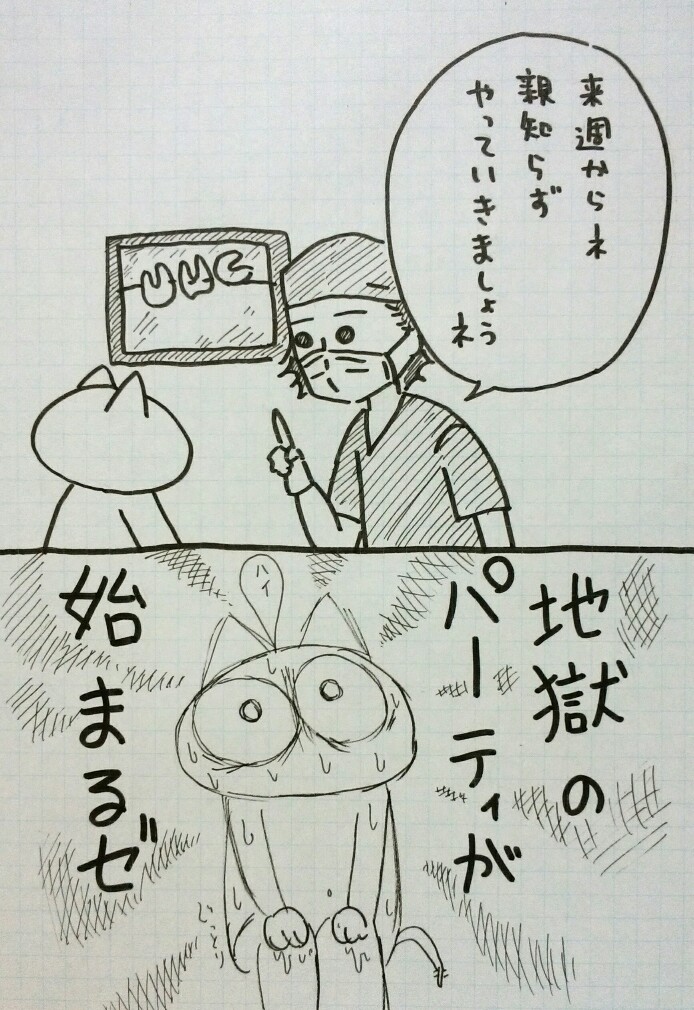 来週からネ
親知らず
やっていきましょう
ネ
ハイ
地獄の
パーティが
始まるゼ
じっとり